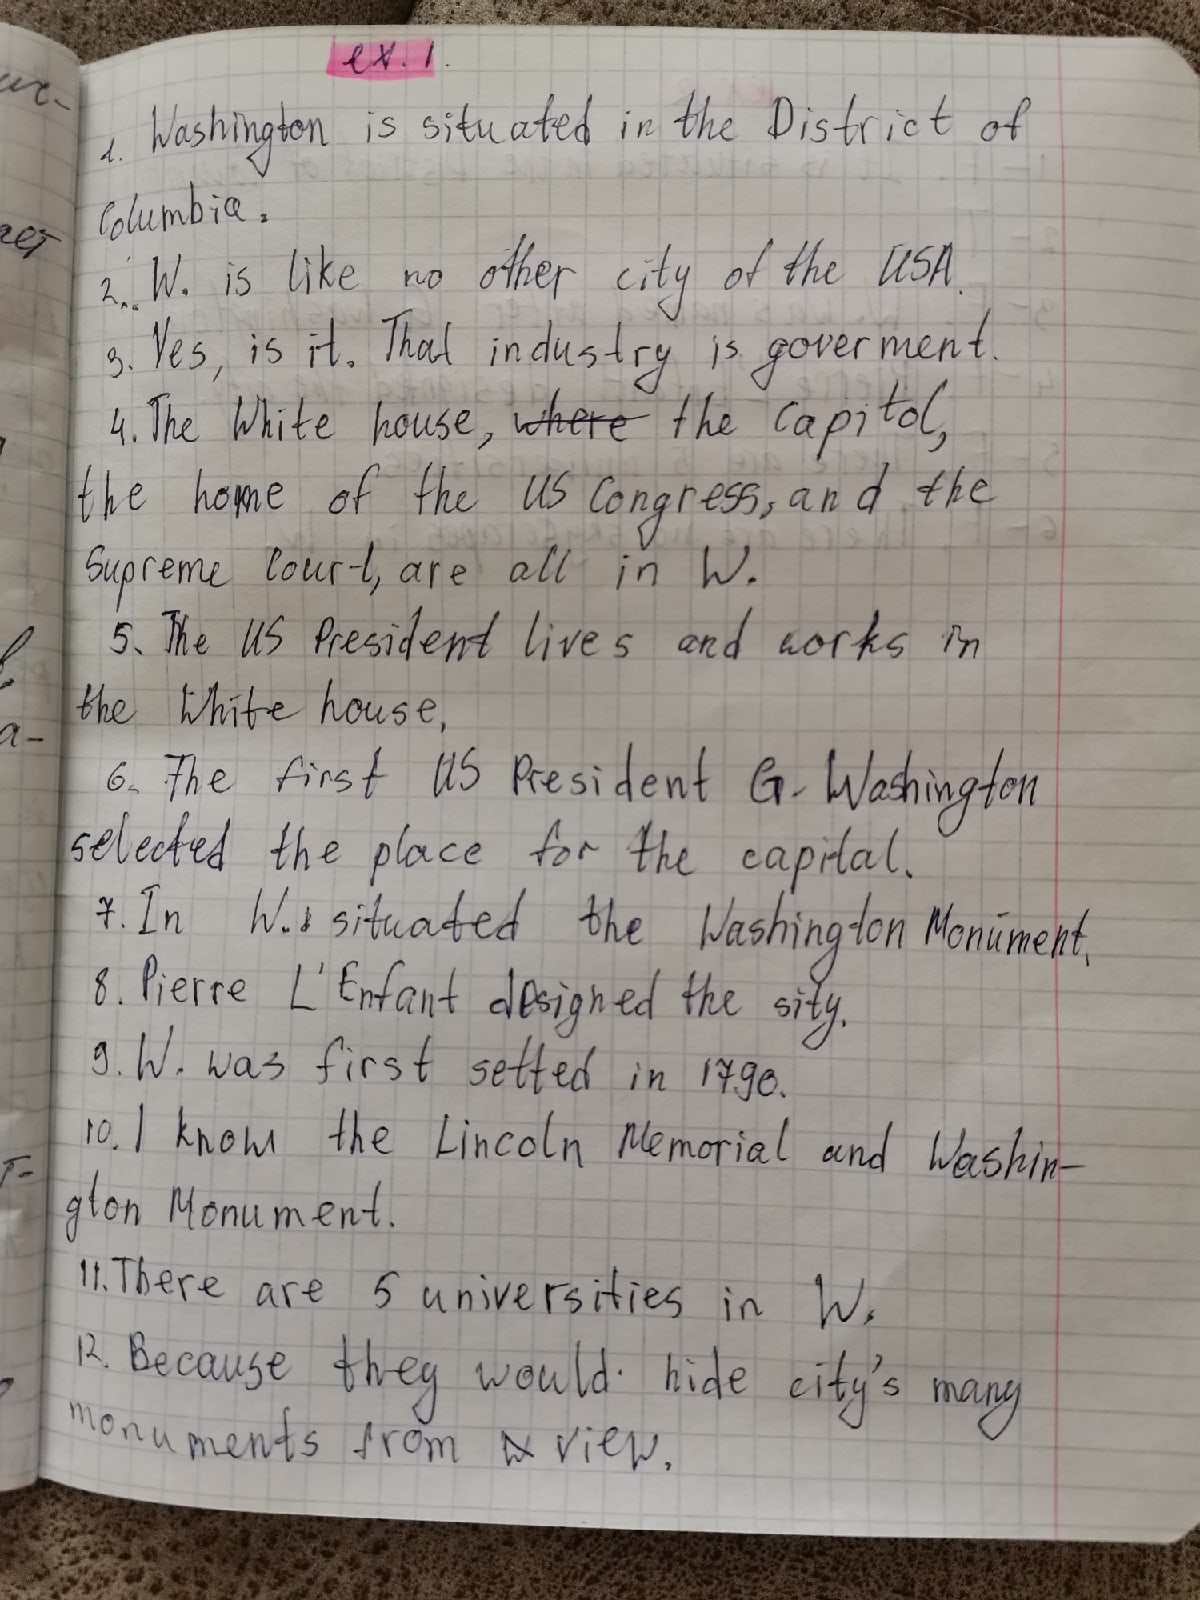 ex. 1.
1. Washington is situated in the District of
Columbia.
2. W. is like no other city of the USA.
3. Yes, is it. That industry is goverment.
4. The White house, where the Capitol,
the home of the US Congress, and the
Supreme Court, are all in W.
5. The US President lives and works in
the White house.
6. The first US President G. Washington
selected the place for the capital.
7. In W. situated the Washington Monument.
8. Pierre L'Enfant designed the sity.
9. W. was first setted in 1790.
10. I know the Lincoln Memorial and Washin-
gton Monument.
11. There are 5 universities in W.
12. Because they would hide city's many
monuments from view.